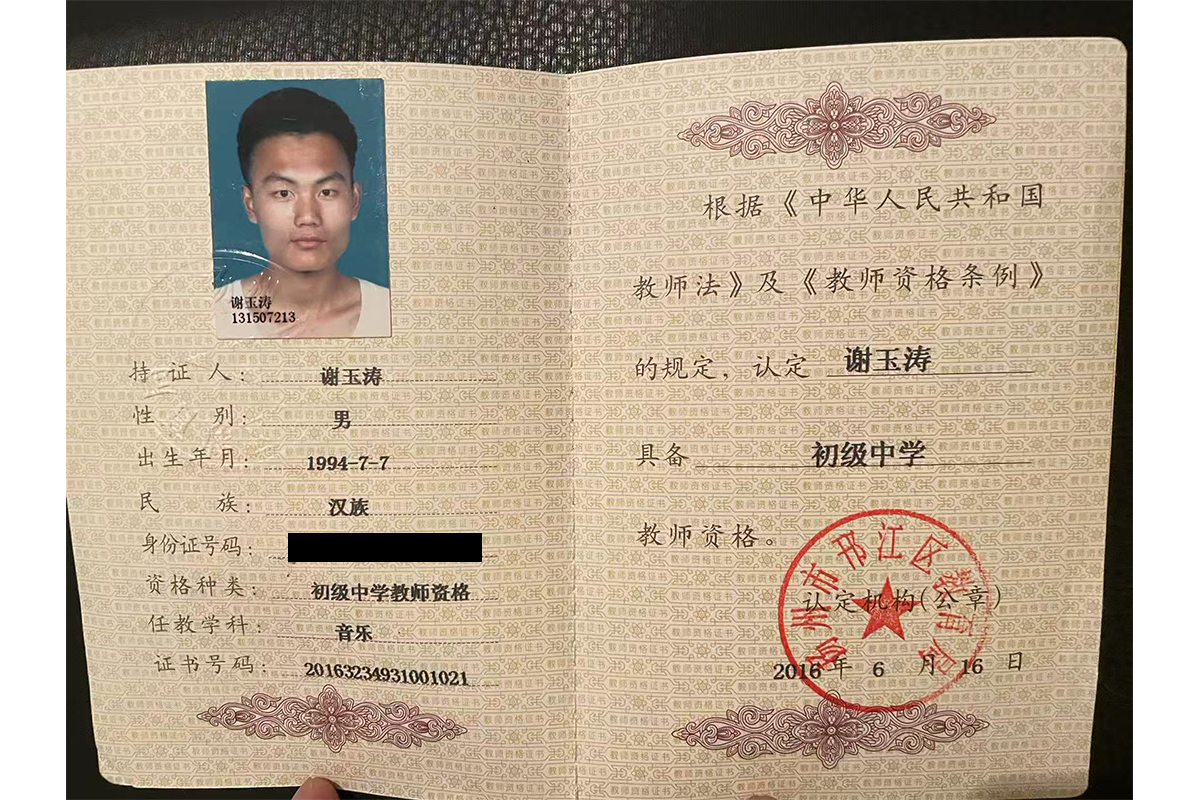 谢玉涛
131507213
持证人：谢玉涛
性别：男
出生年月：1994-7-7
民族：汉族
身份证号码：
资格种类：初级中学教师资格
任教学科：音乐
证书号码：20163234931001021
根据《中华人民共和国
教师法》及《教师资格条例》
的规定，认定 谢玉涛
具备 初级中学
教师资格。
扬州市邗江区教育局
认定机构(公章)
2016年6月16日